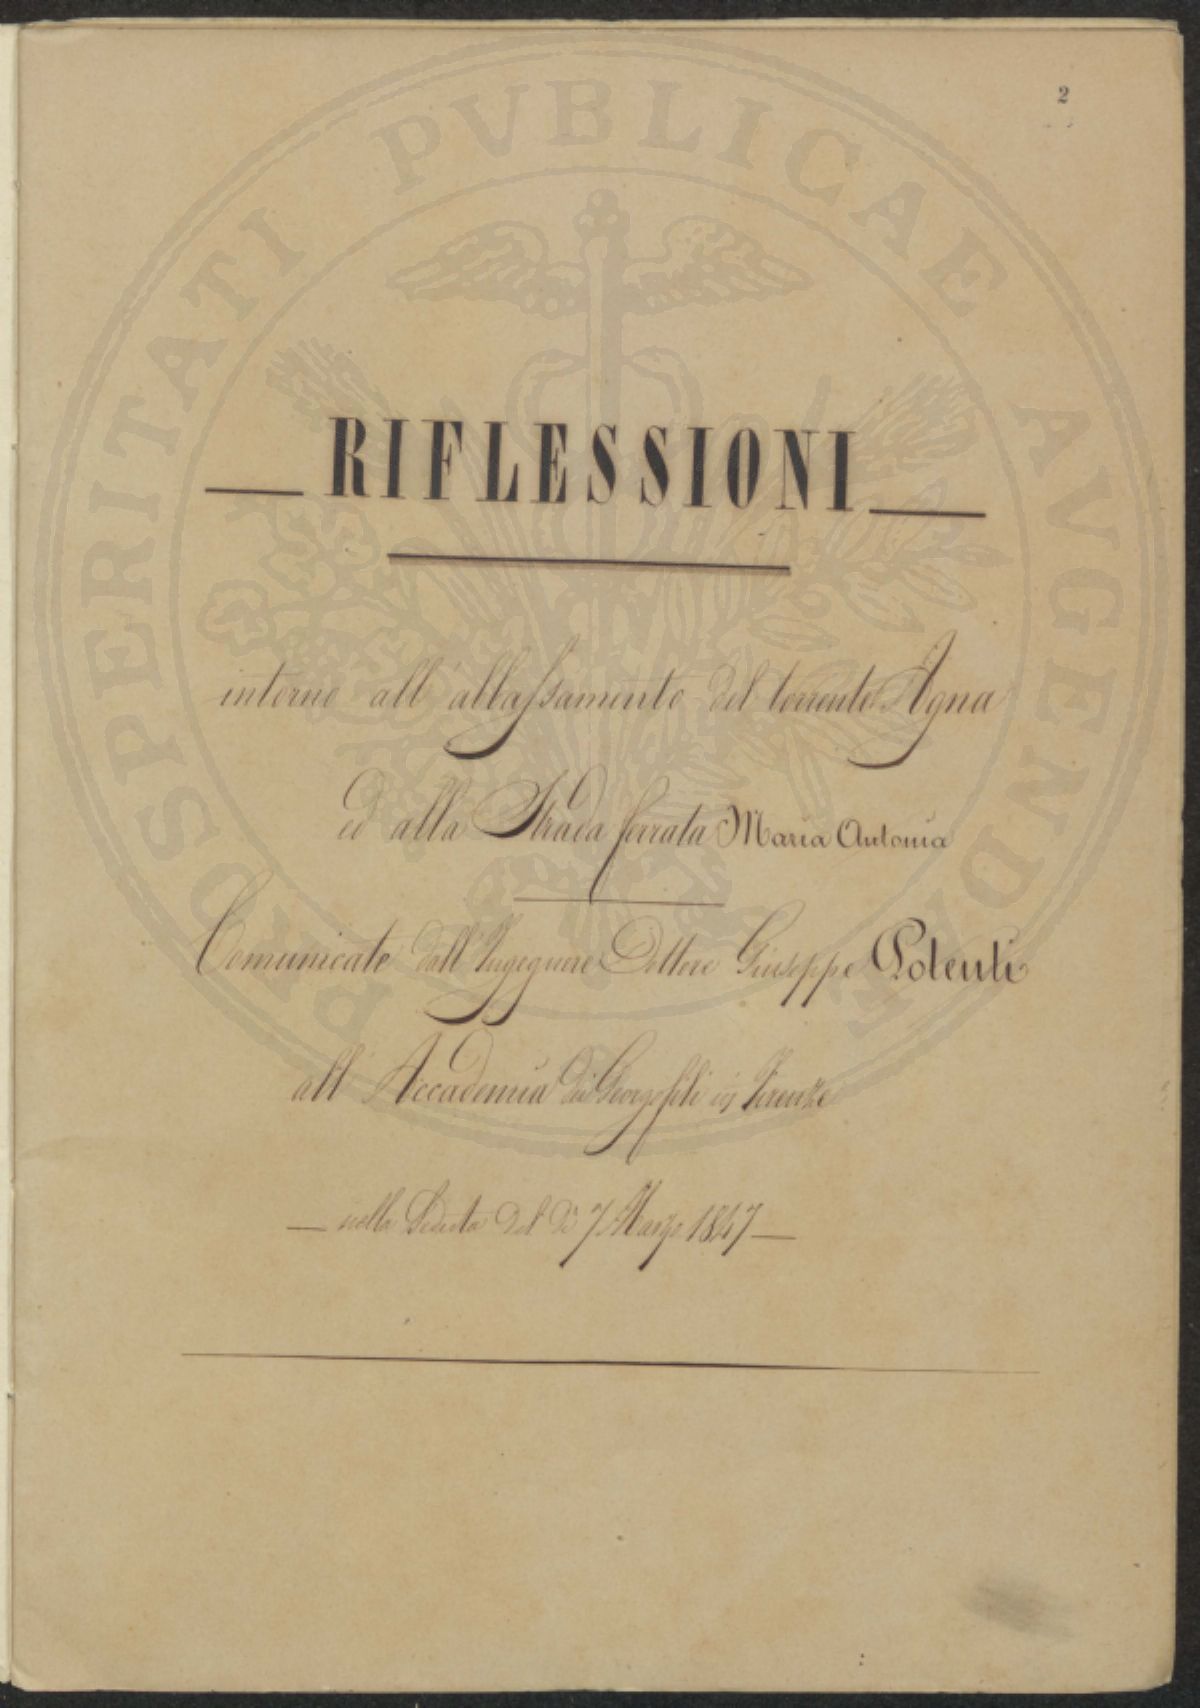 2
PROSPERITATI PUBLICAE AVGENDAE
RIFLESSIONI
intorno all' abbassamento del torrente Agna
ed alla Strada ferrata Maria Antonia
Comunicate dall' Ingegnere Dottore Giuseppe Potenti
all' Accademia dei Georgofili in Firenze
nella Seduta del dì 7 Marzo 1847